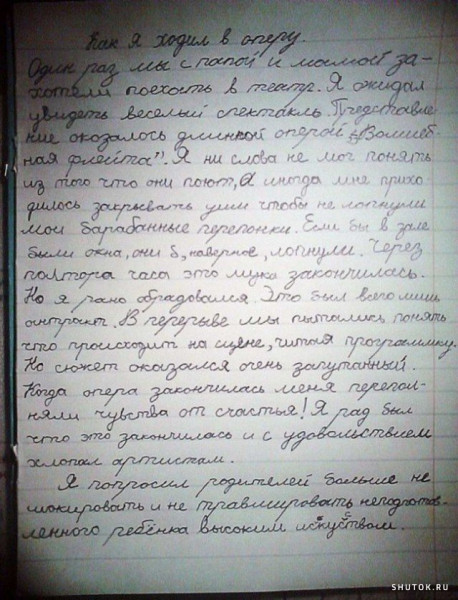 Как я ходил в оперу.
Один раз мы с папой и мамой за-
хотели поехать в театр. Я ожидал
увидеть веселый спектакль. Представле-
ние оказалось длинной оперой „Волшеб-
ная флейта". Я ни слова не мог понять
из того что они поют, а иногда мне прихо-
дилось закрывать уши чтобы не лопнули
мои барабанные перепонки. Если бы в зале
были окна, они б, наверное, лопнули. Через
полтора часа это мука закончилась.
Но я рано обрадовался. Это был всего лишь
антракт. В перерыве мы пытались понять
что происходит на сцене, читая программку.
Но сюжет оказался очень запутанный.
Когда опера закончилась меня перепол-
няли чувства от счастья! Я рад был
что это закончилась и с удовольствием
хлопал артистам.
Я попросил родителей больше не
шокировать и не травмировать неподготов-
ленного ребёнка высоким искуством.
SHUTOK.RU